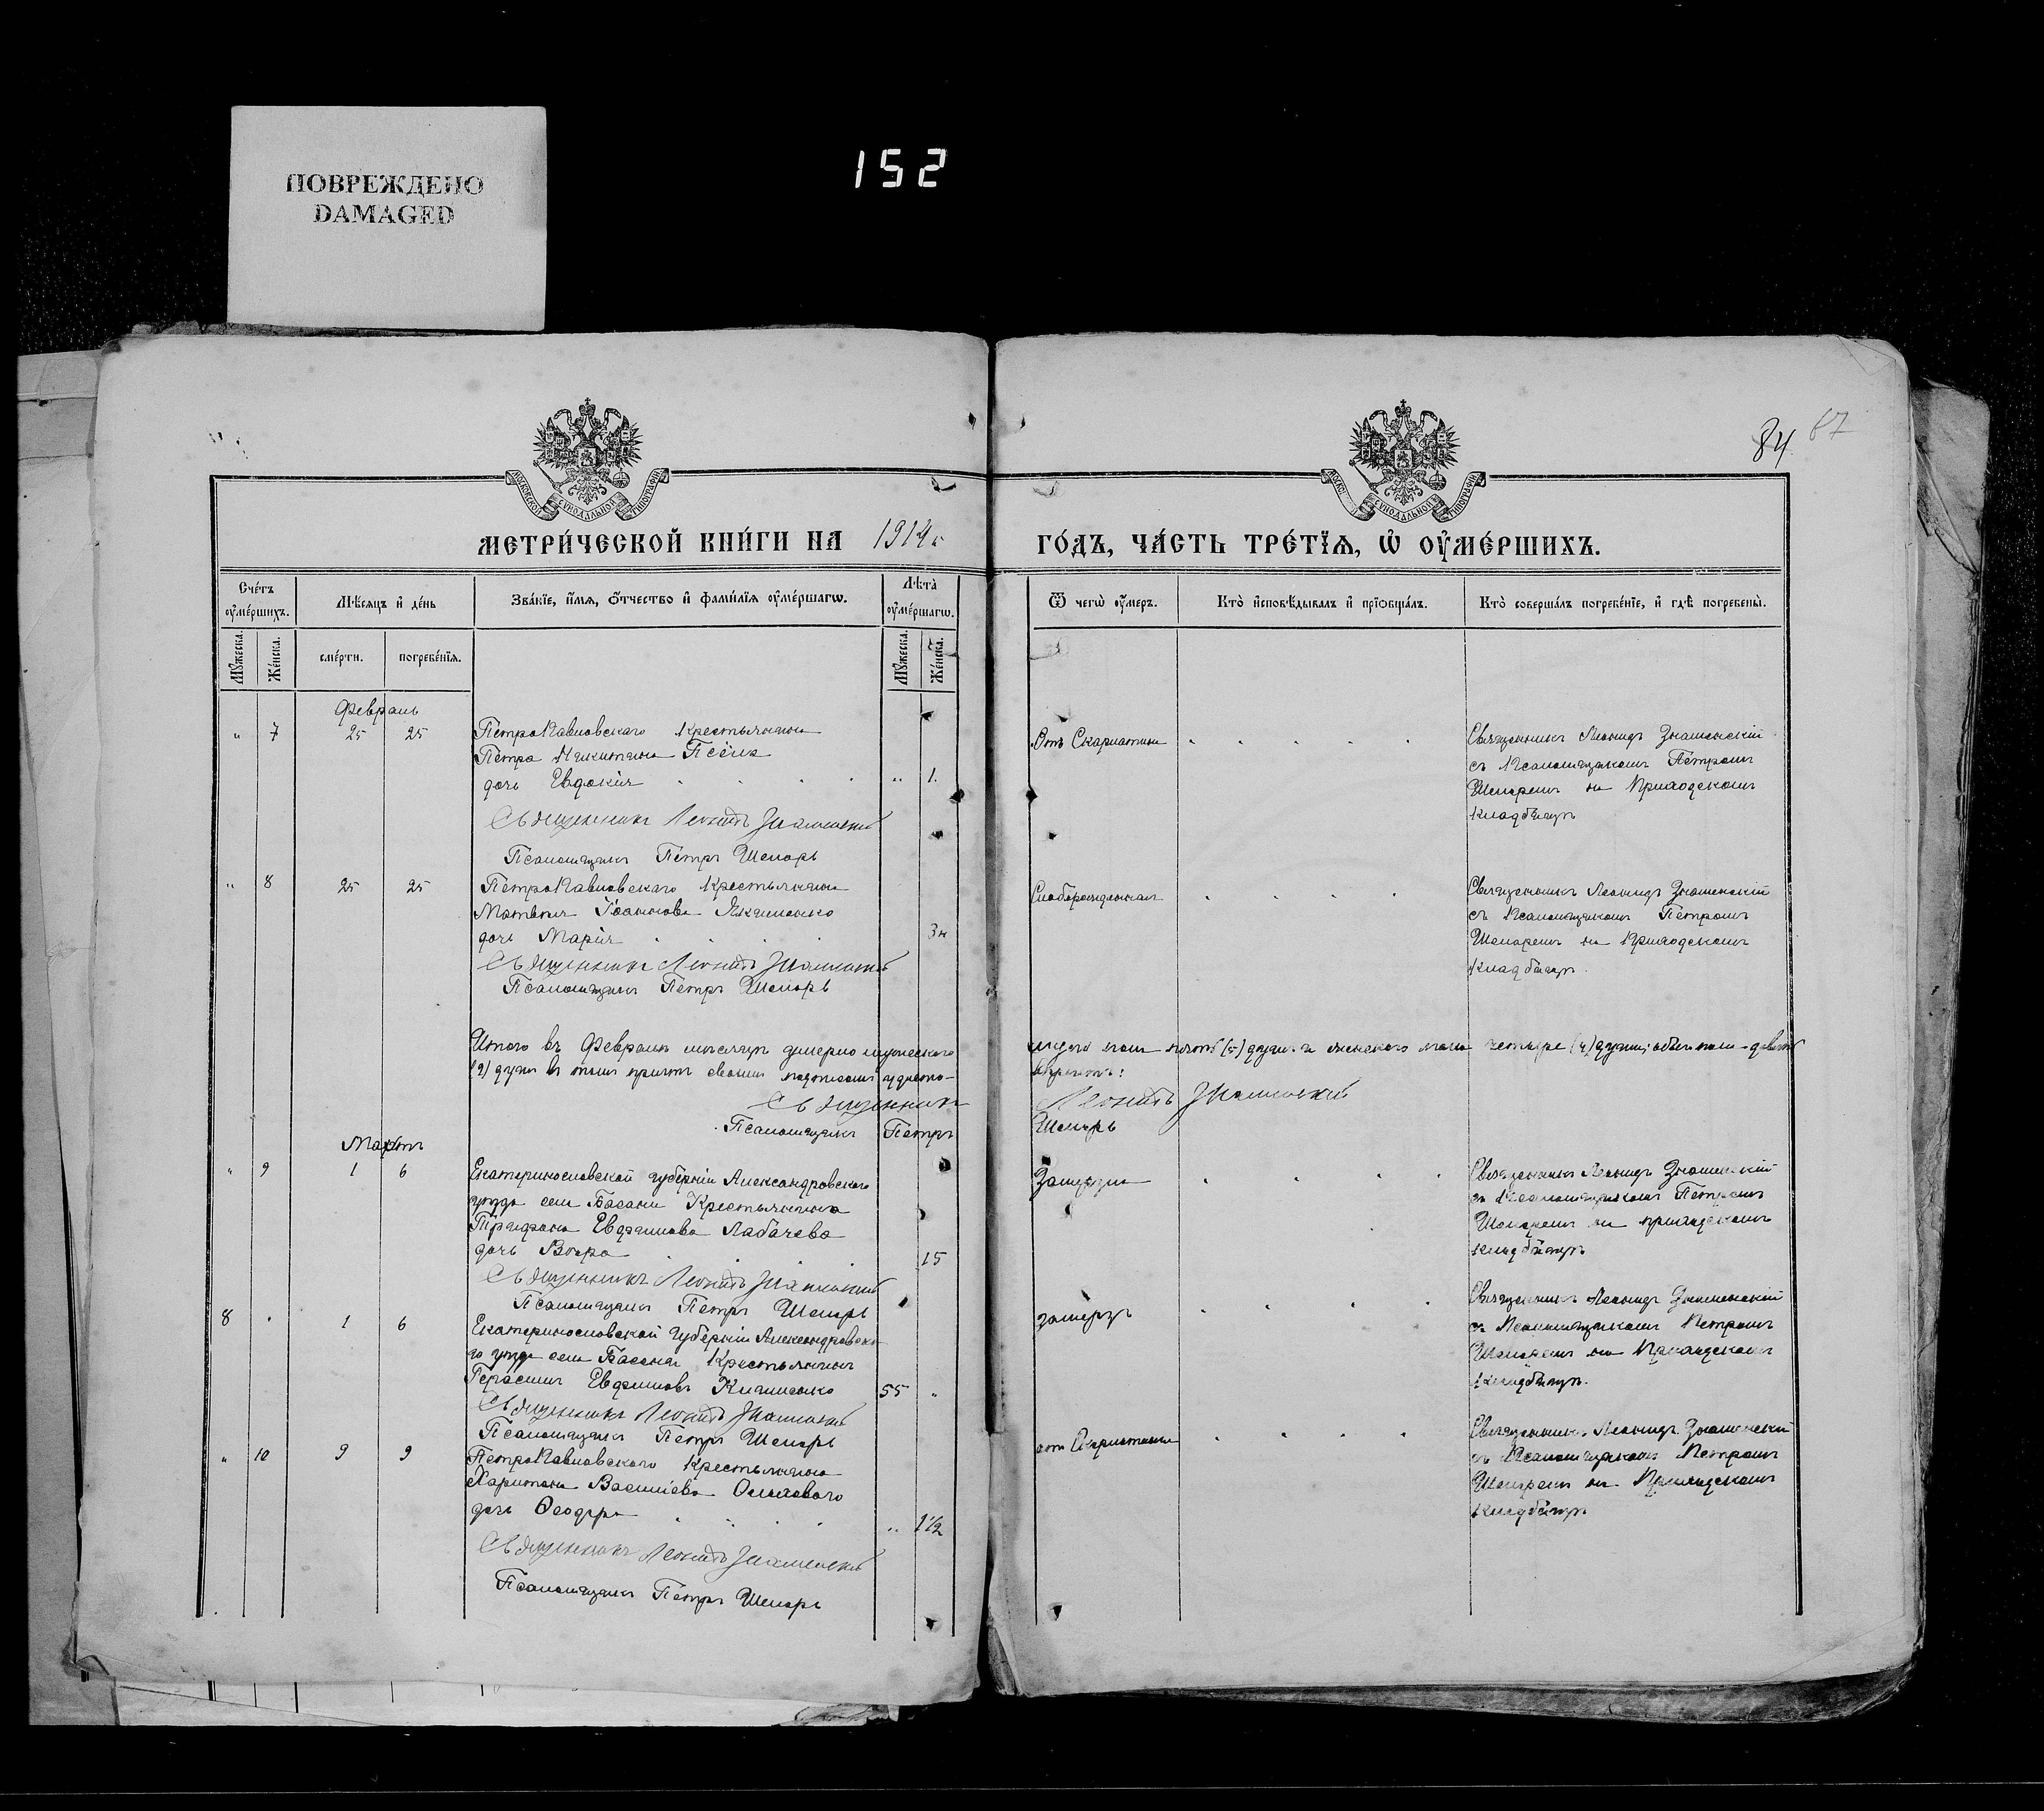 ПОВРЕЖДЕНО
DAMAGED
152
84 67
МОСКОВСКОЙ СѴНОДАЛЬНОЙ ТИПОГРАФІИ
МОСКО СѴНОДАЛЬНОЙ ТИПОГРАФІИ
МЕТРИ́ЧЕСКОЙ КНИ́ГИ НА 1914 г.
ГО́ДЪ, ЧА́СТЬ ТРЕ́ТЇѦ, Ѡ҆ ОУ҆МЕ́РШИХЪ.
Сче́тъ оу҆ме́ршихъ.
Мꙋ́жеска.
Же́нска.
Мѣ́сѧцъ и҆ де́нь
сме́рти.
погребе́нїѧ.
Зва́нїе, и҆́мѧ, ѻ҆́тчество и҆ фами́лїѧ оу҆ме́ршагѡ.
Лѣ́та̀ оу҆ме́ршагѡ.
Мꙋ́жеска.
Же́нска.
Ѿ чегѡ̀ оу҆́меръ.
Кто̀ и҆сповѣ́дывалъ и҆ прїѡбща́лъ.
Кто̀ соверша́лъ погребе́нїе, и҆ гдѣ̀ погребены̀.
Февраль
" 7 25 25
ПетроПавловскаго Крестьянина
Петра Никитина
дочь Евдокія " 1.
Священникъ Леонидъ Знаменскій
Псаломщикъ Петръ Шепарь
Отъ Скарлатины
Священникъ Леонидъ Знаменскій
съ Псаломщикомъ Петромъ
Шепарем на Приходскомъ
кладбищѣ
" 8 25 25
ПетроПавловскаго Крестьянина
Матвѣя Іоаннова Якименко
дочь Марія 3н
Священникъ Леонидъ Знаменскій
Псаломщикъ Петръ Шепарь
Слаборожденная
Священникъ Леонидъ Знаменскій
съ Псаломщикомъ Петромъ
Шепаремъ на Приходскомъ
кладбищѣ.
Итого въ Февралѣ мѣсяцѣ умерло мужеского
пола пять (5) душъ и женскаго пола четыре (4) души; обоего пола девять
(9) душъ въ томъ причтъ своими подписами удосто-
вѣряетъ:
Священникъ Леонидъ Знаменскій
Псаломщикъ Петръ Шепарь
Мартъ
" 9 1 6
Екатеринославской губерніи Александровскаго
уѣзда села Басани Крестьянина
Трифона Евфимова Лабачева
дочь Вѣра 15
Священникъ Леонидъ Знаменскій
Псаломщикъ Петръ Шепарь
Замерзла
Священникъ Леонидъ Знаменскій
съ Псаломщикомъ Петромъ
Шепарем на приходскомъ
кладбищѣ
8 " 1 6
Екатеринославской Губерніи Александровска-
го уѣзда села Басани Крестьянинъ
Герасимъ Евфимовъ 55 "
Священникъ Леонидъ Знаменскій
Псаломщикъ Петръ Шепарь
замерзъ
Священникъ Леонидъ Знаменскій
съ Псаломщикомъ Петромъ
Шепаремъ на Приходскомъ
кладбищѣ.
" 10 9 9
ПетроПавловскаго Крестьянина
Харитона Василіева
дочь Ѳеодора " 1 1/2
Священникъ Леонидъ Знаменскій
Псаломщикъ Петръ Шепарь
от Скарлатины
Священникъ Леонидъ Знаменскій
съ Псаломщикомъ Петромъ
Шепарем на Приходскомъ
кладбищѣ